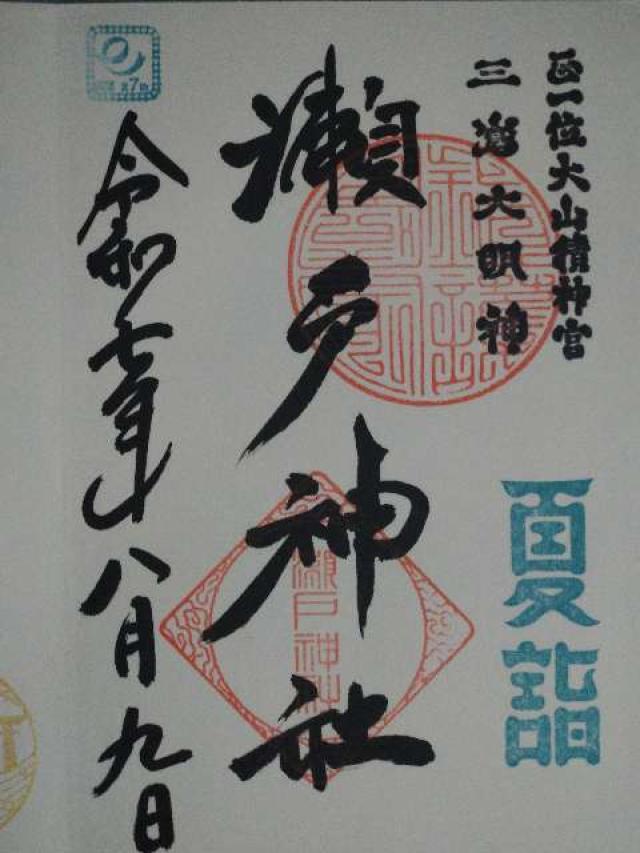 正一位大山積神宮
三嶋大明神
夏詣
瀬戸神社
瀬戸神社
令和七年八月九日